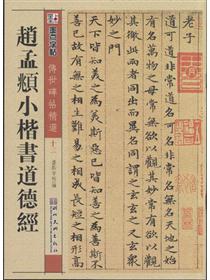 墨点字帖
傳世碑帖精選
趙孟頫小楷書道德經
老子
道可道非常道名可名非常名無名天地始
有名萬物之母常無欲以觀其妙常有欲以觀
其徼此兩者同出而異名同謂之玄玄之又玄衆
妙之門
天下皆知美之爲美斯惡已皆知善之爲善斯不
善已故有無之相生難易之相成長短之相形高